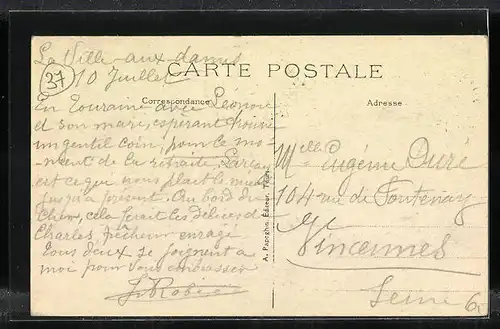 La Ville-aux-dames
(37) 10 Juillet
CARTE POSTALE
Correspondance
Adresse
En Touraine avec Léonore
et son mari, espérant trouver
un gentil coin, pour le mo-
ment de la retraite. Larçay
est ce qui nous plait le mieux
jusqu'à présent. Au bord du
Cher, cela ferait les délices de
Charles, pêcheur enragé
Tous deux se joignent à
moi pour vous embrasser
A. Papeghin, Éditeur, Tours
Melle Eugénie Duré
104 rue de Fontenay
Vincennes
Seine